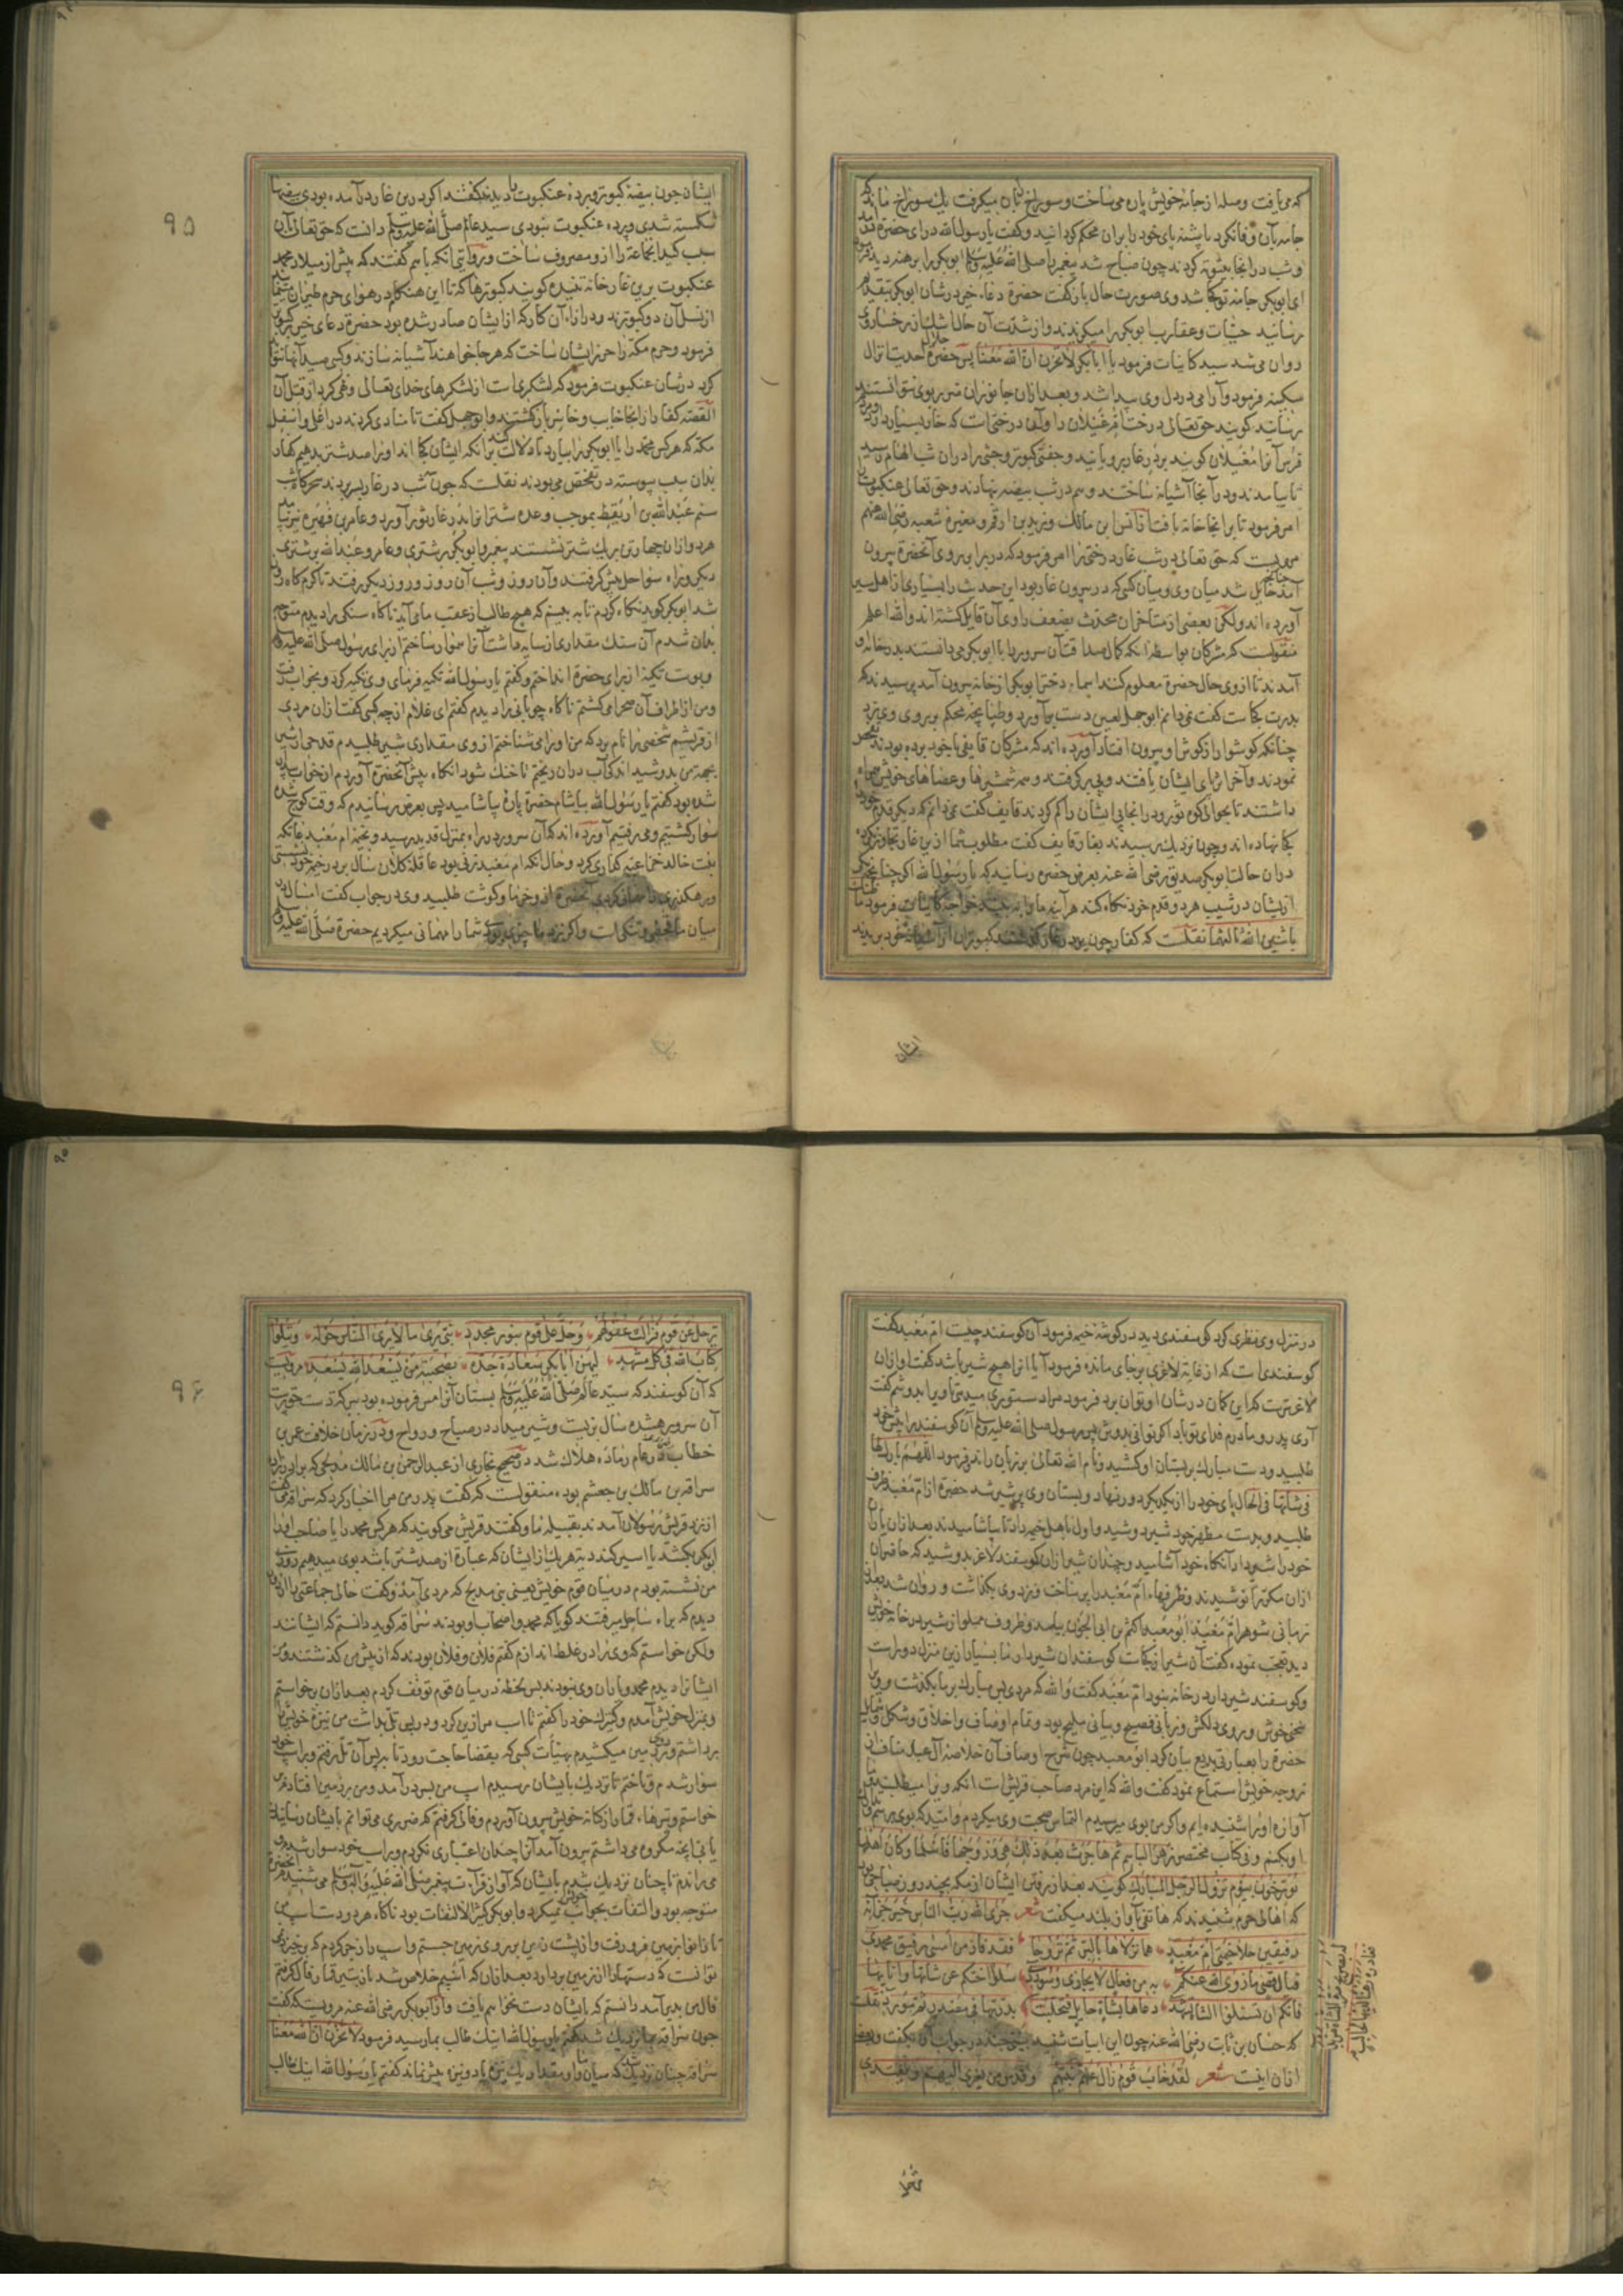 که می‌یافت وصله از جامهٔ خویش پاره می‌ساخت و سوراخ بآن میگرفت یک سوراخ ماند که
جامه بآن وفا نکرد پاشنهٔ پای خود را بران محکم گردانید و گفت یا رسول الله درآی حضرة
و شب در انجا بیتوته کردند چون صباح شد پیغمبر صلی الله علیه وسلم ابوبکر را برهنه دید فرمود
ای ابوبکر جامهٔ تو کجا شد وی صورت حال باز گفت حضرة دعاء خیر در شان ابوبکر بتقدیم
رسانید حیّات و عقارب پا ابوبکر را میگزیدند و از شدّت آن حال اشک از رخسار وی
روان می‌شد سید کاینات فرمود یا ابابکر لا تحزن ان الله معنا پس حضرة جلال احدیت انزال
سکینه فرمود و آرامی در دل وی پیدا شد و بعد ازان جانوران متی بر وی نتوانستند
رسانید گویند حق تعالی درخت ام غیلان را و آن درختیست که خار بسیار دارد و
فرس آنرا مغیلان گویند بر در غار برویانید و جفتی کبوتر وحشی را دران شب الهام رسید
تا بیامدند و در آنجا آشیانه ساختند و هم در شب بیضه نهادند و حق تعالی عنکبوت را
امر فرمود تا بر انجا خانه بافت از انس بن مالک و زید بن ارقم و مغیره شعبه رضی الله عنهم
مرویست که حق تعالی در شب غار درختی را امر فرمود که در برابر روی آنحضرة بیرون
آمد حایل شد میان وی و میان کسی که در بیرون غار بود این حدیث را بسیاری از اهل سیر
آورده‌اند ولکن بعضی از متأخران محدث بضعف راوی آن قایل گشته‌اند و الله اعلم
منقولست که مشرکان بواسطه آنکه کمال صداقت آن سرور با ابوبکر می‌دانستند بدر خانهٔ او
آمدند تا از وی حال حضرة معلوم کنند اسماء دختر ابوبکر از خانه بیرون آمد پرسیدند که
پدرت کجاست گفت نمی‌دانم ابوجهل لعین دست برآورد و طپانچه محکم بر روی وی زد
چنانکه گوشوار از گوش او بیرون افتاد آورده‌اند که مشرکان قایفی با خود برده بودند تفحص
نمودند و آخر اثر پای ایشان یافتند و پی برگرفتند و همه شمشیرها و عصاهای خویش همراه
داشتند تا بحوالی کوه ثور و در انجا پی ایشان را گم کردند قایف گفت نمی‌دانم که دیگر قدم خود
کجا نهاده‌اند و چون نزدیک رسیدند بغار قایف گفت مطلوب شما ازین غار تجاوز نکرده
دران حالت ابوبکر صدیق رضی الله عنه بعرض حضرة رسانید که یا رسول الله اگر چنانچه یکی
ازیشان در شیب هر دو قدم خود نگاه کند هر آینه ما را به بیند خواجه کاینات فرمود ما ظنک
باثنین الله ثالثهما نقلست که کفار چون بدر غار گذشتند کبوتران از آشیانهٔ خود بریدند
ایشان
۹۵
ایشان چون بیضهٔ کبوتر و پردهٔ عنکبوت را دیدند گفتند اگر درین غار درآمده بودی بیضها
شکسته شدی و پرده عنکبوت نبودی سید عالم صلی الله علیه وسلم دانست که حق تعالی بآن
سبب کید انجماعة را ازو مصروف ساخت و بروایتی آنکه باهم گفتند که پیش از میلاد محمد
عنکبوت برین غار خانه تنیده گویند کبوترها که تا این هنگام در هوای حرم طیران می‌نمایند
از نسل آن دو کبوترند و در ازاء آن کار که از ایشان صادر شده بود حضرة دعای خیر کبوتر
فرمود و حرم مکه را حرز ایشان ساخت که هر جا خواهند آشیانه سازند و کسی صید آنها نتواند
کرد در شان عنکبوت فرمود که لشکریست از لشکرهای خدای تعالی و نهی کرد از قتل آن
القصه کفار از انجا خایب و خاسر بازگشتند و ابوجهل گفت تا منادی کردند در اعلی و اسفل
مکه که هر کس محمد را یا ابوبکر را بیارد یا دلالت کند بر آنکه ایشان کجااند او را صد شتر بدهیم کفار
بدان سبب پیوسته در تفحص می‌بودند نقلست که چون سه شب در غار بسر بردند سحرگاه شب
سیم عبدالله بن اریقط بموجب وعده شتران را بدر غار ثور آورد و عامر بن فهیره نیز بیامد
هر دو ازان چهار تن بر یک شتر نشستند پیغمبر و ابوبکر بر شتری و عامر و عبدالله بر شتری
دیگر و راه سواحل پیش گرفتند و آن روز و شب آن روز و روز دیگر برفتند تا گرمگاه روز
شد ابوبکر گوید نگاه کردم تا به بینم که هیچ طالب از عقب ما می‌آید ناگاه سنگی را دیدم متوجه
بدان شدم آن سنگ مقداری از سایه داشت آنرا هموار ساختم از برای رسول صلی الله علیه وسلم
و پوست تکیه از برای حضرة انداختم و گفتم یا رسول الله تکیه فرمای وی تکیه کرد و بخواب رفت
و من از اطراف آن صحرا میگشتم ناگاه چوپانی را دیدم گفتم ای غلام از چه کسی گفت از ان مردی
از قریشم شخصی را نام برد که من او را می‌شناختم از وی مقداری شیر طلبیدم قدحی از شیر
بجهة من بدوشید اندکی آب دران ریختم تا خنک شود انگاه پیش آنحضرة آوردم از خواب بیدار
شده بود گفتم یا رسول الله بیاشام حضرة پاره بیاشامید پس بعرض رسانیدم که وقت کوچ شده
سوار گشتیم و می‌رفتیم آورده‌اند که آن سرور در راه بمنزل قدید رسید و بخیمه ام معبد عاتکه
بنت خالد خزاعیه گذاری کرد و حال آنکه ام معبد زنی بود عاقله کلان سال بر در خیمه خود نشستی
و رهگذری را مهمانی کردی آنحضرة ازو خرما و گوشت طلبید وی در جواب گفت امسال در
میان ما قحطی و تنگیست و اگر نزد ما چیزی بودی شما را مهمانی میکردیم حضرة صلی الله علیه وسلم
در منزل وی نظری کرد گوسفندی دید در گوشهٔ خیمه فرمود آن گوسفند چیست ام معبد گفت
گوسفندیست که از غایة لاغری بر جای مانده فرمود آیا او را هیچ شیر باشد گفت او ازان
لاغرترست که این گمان در شان او توان برد فرمود مرا دستوری میدهی تا ویرا بدوشم گفت
آری پدر و مادرم فدای تو باد اگر توانی بدوش پس رسول صلی الله علیه وسلم آن گوسفند را پیش خود
طلبید و دست مبارک بر پستان او کشید و نام الله تعالی بر زبان راند و فرمود اللهم بارک لها
فی شاتها فی الحال پای خود را از یکدیگر دور نهاد و پستان وی پر شیر شد حضرة از ام معبد ظرف
طلبید و بدست مطهر خود شیر دوشید و اول باهل خیمه داد تا بیاشامیدند بعد ازان یاران
خود را شیر داد آنگاه خود آشامید و چندان شیر ازان گوسفند لاغر بدوشید که حاضران
ازان مکرر نوشیدند و ظرفهاء ام معبد را پر ساخت و نزد وی بگذاشت و روان شد بعد
زمانی شوهر ام معبد ابو معبد اکثم بن ابی الجون بیامد و ظروف مملو از شیر در خانه خویش
دید تعجب نموده گفت آن شیر از کجاست گوسفندان شیردار ما بسیار ازین منزل دورست
و گوسفند شیردار در خانه نبود ام معبد گفت والله که مردی بس مبارک بر ما بگذشت و وی
سخنی خوش و روی دلکش و زبانی فصیح و بیانی ملیح بود و تمام اوصاف و اخلاق و شکل و شمایل
حضرة را بعبارتی بدیع بیان کرد ابو معبد چون شرح اوصاف آن خلاصهٔ آل عبد مناف از
زوجه خویش استماع نمود گفت والله که این مرد صاحب قریش است آنکه ویرا میطلبند
آوازه او را شنیده‌ایم و اگر من بوی میرسیدم التماس صحبت وی میکردم و امید که بوی برسم و آن
که اهالی حرم شنیدند که هاتفی بآواز بلند میگفت شعر جزی الله رب الناس خیر جزائه
رفیقین حلا خیمتی ام معبد هما نزلاها بالبر ثم تروحا فقد فاز من امسی رفیق محمد
فیال قصی ما زوی الله عنکم به من فعال لا یجازی و سودد سلوا اختکم عن شاتها و انائها
فانکم ان تسئلوا الشاة تشهد دعاها بشاة حایل فتحلبت
که حسان بن ثابت رضی الله عنه چون این ابیات شنید بیتی چند در جواب آن بگفت و بعضی
ازان اینست شعر لقد خاب قوم زال عنهم نبیهم و قدس من یسری الیهم و یغتدی
۹۶
ترحل عن قوم فزالت عقولهم و حل علی قوم بنور مجدد نبی یری ما لا یری الناس حوله و یتلو
کتاب الله فی کل مشهد لیهن ابا بکر سعادة جده بصحبته من یسعد الله یسعد مرویست
که آن گوسفند که سید عالم صلی الله علیه وسلم پستان آنرا مس فرموده بود ببرکة دست
آن سرور هشده سال بزیست و شیر میداد در صباح و رواح و در زمان خلافت عمر بن
خطاب در عام رماده هلاک شد در صحیح بخاری از عبدالرحمن بن مالک مدلجی که برادرزادهٔ
سراقه بن مالک بن جعشم بوده منقولست که گفت پدر من مرا اخبار کرد که سراقه گفت
از نزد قریش رسولان آمدند بقبیله ما و گفتند قریش می‌گویند که هر کس محمد را یا صاحب او را
ابوبکر بکشد یا اسیر کند دیة هر یک از ایشان که عبارة از صد شتر باشد بوی میدهیم روزی
من نشسته بودم در میان قوم خویش یعنی بنی مدلج که مردی آمد و گفت حالی جماعتی را
دیدم که براه ساحل میرفتند گویا که محمد و اصحاب او بودند سراقه گوید دانستم که ایشانند
ولکن خواستم که وی را در غلط اندازم گفتم فلان و فلان بودند که از پیش من گذشتند و من
ایشانرا دیدم محمد و یاران وی نبودند پس لحظه در میان قوم توقف کردم بعد ازان برخاستم
و بمنزل خویش آمدم و کنیزک خود را گفتم تا اسب مرا زین کرد و در پس تل بداشت من نیزه خویش را
سوار شدم و تاختم تا نزدیک بایشان رسیدم اسپ من بسر درآمد و من بر زمین افتادم
می‌راندم تا چنان نزدیک شدم بایشان که آواز قرآءت پیغمبر صلی الله علیه وآله وسلم می‌شنیدم
متوجه بود و التفات بجوانب نمیکرد و ابوبکر کثیر الالتفات بود ناگاه هر دو دست اسپ من
تا زانو بزمین فرو رفت و از پشت زین بر روی زمین جستم و اسپ را زجر کردم که برخیزد
فال من بد برآمد دانستم که بایشان دست نخواهم یافت و از ابوبکر رضی الله عنه مرویست که گفت
چون سراقه بما نزدیک شد گفتم یا رسول الله اینک طالب بما رسید فرمود لا تحزن ان الله معنا
سراقه چنان نزدیک شد که میان ما و او مقدار یک نیزه یا دو نیزه بیش نماند گفتم یا رسول الله اینک طالب